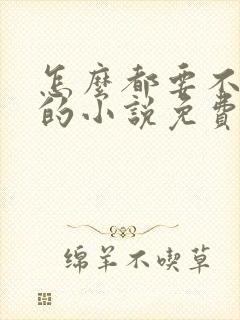 怎麼都要不
的小說免費
绵羊不喫草